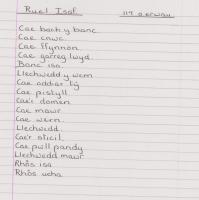 Ruel Isaf. 117 acerwau
Cae bach y banc
Cae cnwc.
Cae ffynnon.
Cae garreg lwyd.
Banc isa.
Llechwedd y wern
Cae oddiar tŷ
Cae pistyll.
Cae'r domen.
Cae mawr
Cae wern.
Llechwedd.
Cae'r sticil.
Cae pwll pandy
Llechwedd mawr.
Rhôs isa.
Rhôs ucha.